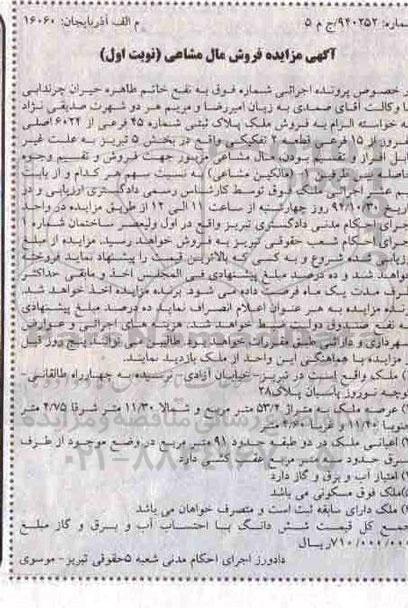 شماره: ۹۴۰۲۵۲/ج م ۵
م الف آذربایجان: ۱۶۰۶۰
آگهی مزایده فروش مال مشاعی (نوبت اول)
خصوص پرونده اجرائی شماره فوق به نفع خانم طاهره حیران چرندابی
با وکالت آقای صمدی به زیان امیررضا و مریم هر دو شهرت صدیقی نژاد
به خواسته الزام به فروش ملک پلاک ثبتی شماره ۴۵ فرعی از ۶۰۲۴ اصلی
مفروز از ۱۵ فرعی قطعه ۲ تفکیکی واقع در بخش ۵ تبریز به علت غیر
قابل افراز و تقسیم بودن، مال مشاعی مزبور جهت فروش و تقسیم وجوه
حاصله بین طرفین (مالکین مشاعی) به نسبت سهم هر کدام و از بابت
نیم عشر اجرایی ملک فوق توسط کارشناس رسمی دادگستری ارزیابی و در
تاریخ ۹۴/۱۰/۳۰ روز چهارشنبه از ساعت ۱۱ الی ۱۲ از طریق مزایده در واحد
اجرای احکام مدنی دادگستری تبریز واقع در اول ولیعصر ساختمان شماره ۱
اجرای احکام شعب حقوقی تبریز به فروش خواهد رسید. مزایده از مبلغ
ارزیابی شده شروع و به کسی که بالاترین قیمت را پیشنهاد نماید فروخته
خواهد شد و ده درصد مبلغ پیشنهادی فی المجلس اخذ و مابقی حداکثر
ظرف مدت یک ماه فرصت داده می شود. برنده مزایده اخذ خواهد شد.
برنده مزایده به هر عنوان اعلام انصراف نماید ده درصد مبلغ پیشنهادی
به نفع صندوق دولت ضبط خواهد شد. هزینه های اجرائی و عوارض
شهرداری و دارائی طبق مقررات خواهد بود. طالبین می توانند پنج روز قبل
از مزایده با هماهنگی این واحد از ملک بازدید نمایند.
۱) ملک واقع است در تبریز- خیابان آزادی- نرسیده به چهارراه طالقانی-
کوچه نوروز پاسبان پلاک ۲۸
۲) عرصه ملک به متراژ ۵۳/۴ متر مربع و شمالا ۱۱/۳۰ متر شرقا ۴/۷۵ متر
جنوبا ۱۱/۴۰ و غربا ۴/۶۰ متر
۳) اعیانی ملک در دو طبقه حدود ۹۱ متر مربع در وضع موجود از طرف
شرق حدود متر مربع عقب کشی دارد
۴) امتیاز آب و برق و گاز دارد
۵) ملک فوق مسکونی می باشد
۶) ملک دارای سابقه ثبت است و متصرف خواهان می باشد
جمع کل قیمت شش دانگ با احتساب آب و برق و گاز مبلغ
۷۱۰/۰۰۰/۰۰۰ ریال
دادورز اجرای احکام مدنی شعبه ۵ حقوقی تبریز- موسوی